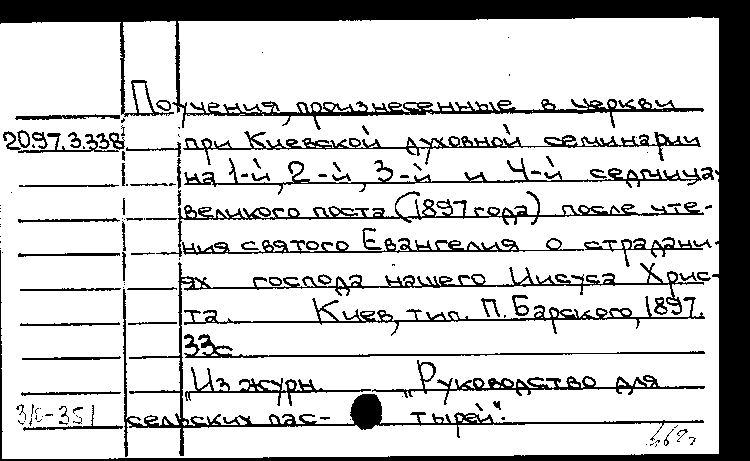 Поучения, произнесенные в церкви
2097.3.338 при Киевской духовной семинарии
на 1-й, 2-й, 3-й и 4-й седмицах
великого поста (1897 года) после чте-
ния святого Евангелия о страдани-
ях господа нашего Иисуса Хрис-
та. Киев, тип. П. Барского, 1897.
33с.
"Из журн. "Руководство для
сельских пас- тырей".